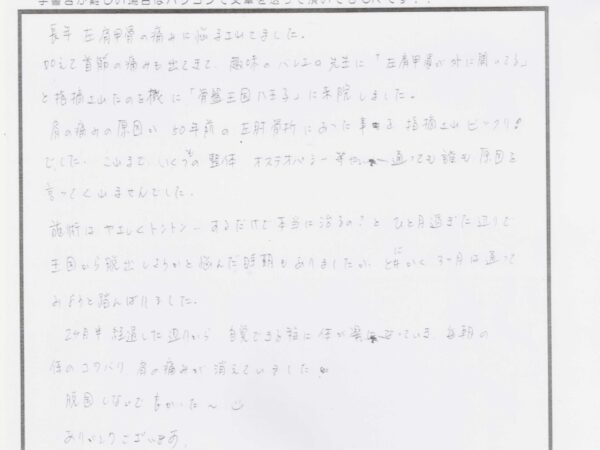 手書きが難しい場合はパソコンで文章を送って頂いてもOKです!!
長年 左肩甲骨の痛みに悩まされてました。
加えて首筋の痛みも出てきて、趣味のバレエの先生に「左肩甲骨が外に開いてる」
と指摘されたのを機に「骨盤王国八王子」に来院しました。
肩の痛みの原因が 50年前の左肘骨折にあった事を指摘されビックリ!
でした。これまで、いくつもの整体 オステオパシー等 通っても誰も原因を
言ってくれませんでした。
施術は やさしくトントン… するだけで本当に治るの?と ひと月過ぎた辺りで
王国から脱出しようかと悩んだ時期もありましたが、とにかく3ヶ月は通って
みようと踏んばりました。
2ヶ月半経過した辺りから 自覚できる程に体が楽に なっていき、毎朝の
体のコワバリ、肩の痛みが消えていきました
脱国しないで良かった〜
ありがとうございます。